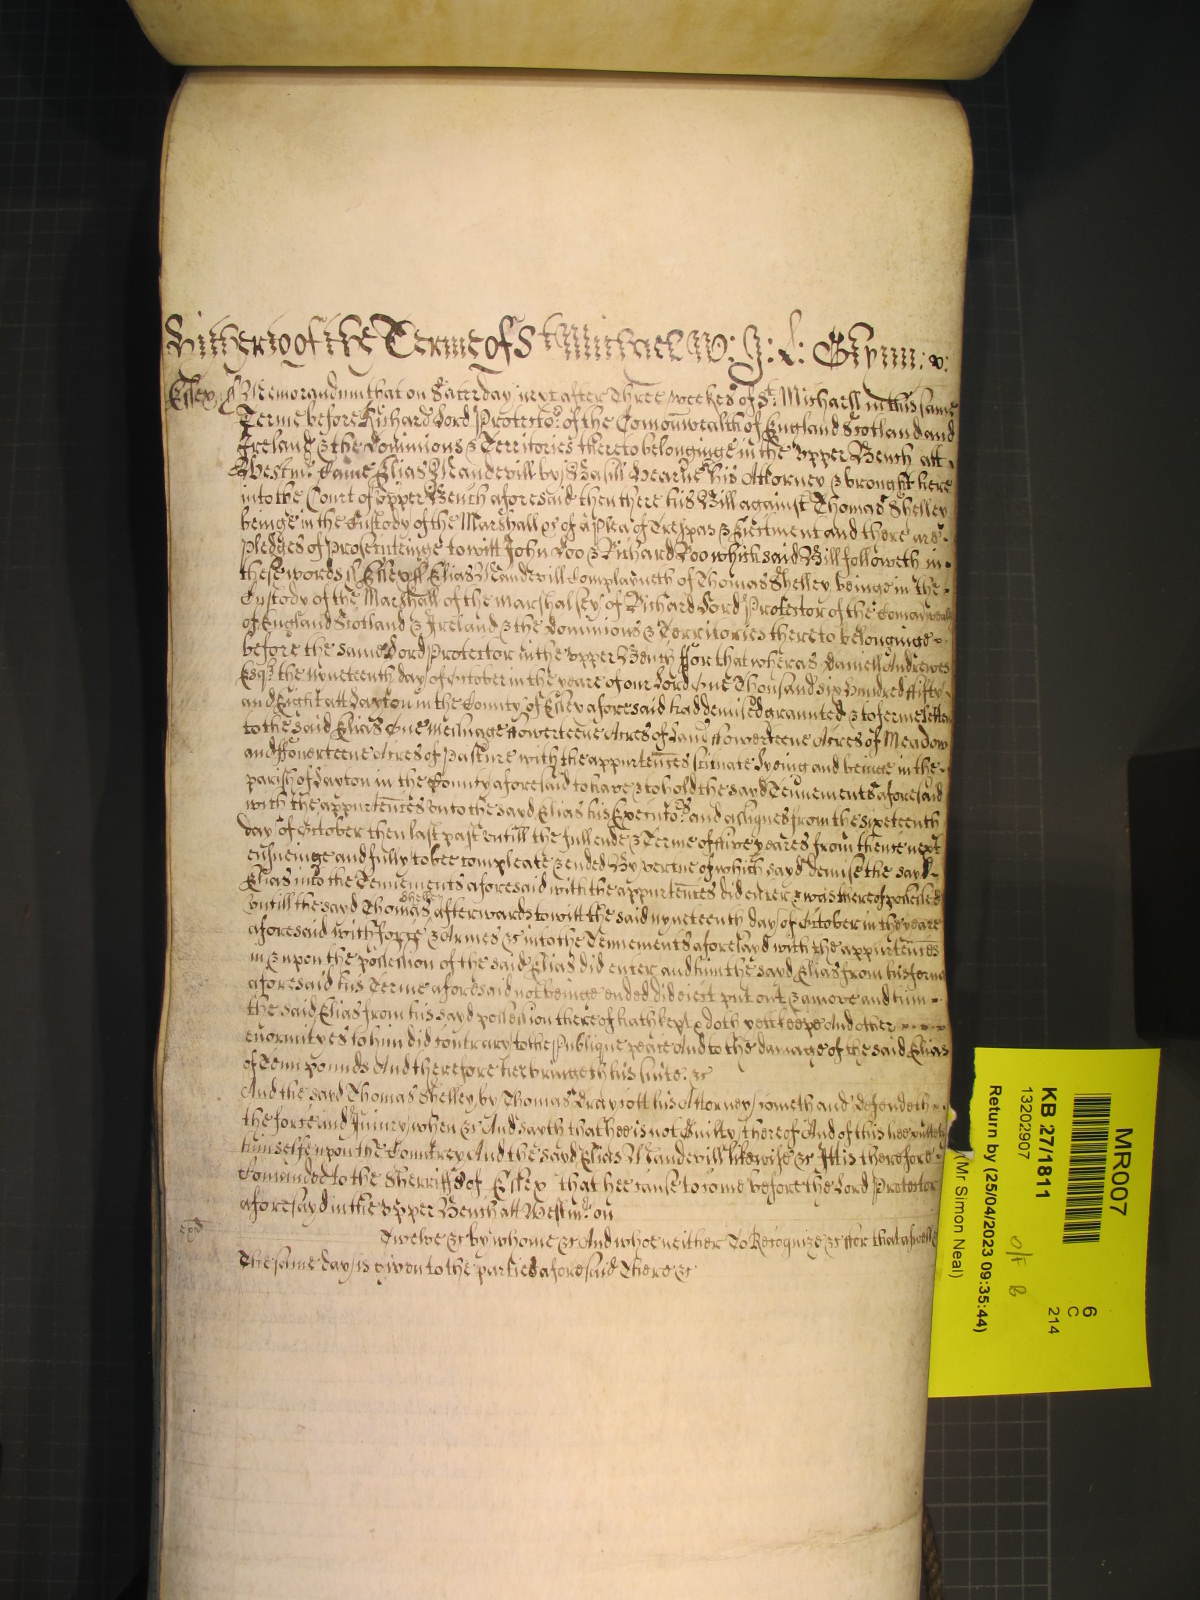 Hitherto of the Terme of St Michaell W: J: L: Glynn: v:
Essex ss Memorandum that on Saterday next after Three weekes of St. Michaell in this same
Terme before Richard Lord Protector of the Comonwealth of England Scotland and
Ireland & the Dominions & Territories thereto belonginge in the vpper Bench att
Westmr. Came Elias Mandevill by Basill Hearne his Attorney & brought here
into the Court of vpper Bench aforesaid then there his Bill against Thomas Shelley
beinge in the Custody of the Marshall &c of a Plea of Trespas & Eiectment and there are
Pledges of Prosecuteinge to witt John Doo & Richard Roo which said Bill followeth in
these words ss Essex ss Elias Mandevill Complayneth of Thomas Shelley beinge in the
Custody of the Marshall of the Marshalsey of Richard Lord Protector of the Comonwealth
of England Scotland & Ireland & the Dominions & Territories thereto belonginge
before the same Lord Protector in the vpper Bench ffor that wheras Daniell Andrewes
Esqr the nyneteenth day of October in the yeare of our Lord One Thousand six hundred ffifty
and Eight att Layton in the County of Essex aforesaid had demised graunted & to ferme letten
to the said Elias One Messuage ffowerteene Acres of Land ffowerteene Acres of Meadow
and ffowerteene Acres of Pasture with the appurtences scituate lyeing and beinge in the
parish of Layton in the County aforesaid to have & to hold the sayd Tennements aforesaid
with the appurtences vnto the sayd Elias his Executors and assignes from the sixteenth
day of October then last past vntill the full ende & Terme of ffive yeares from thence next
ensueinge and fully to bee compleate & ended By vertue of which sayd demise the sayd
Elias into the Tennements aforesaid with the appurtences did enter & was thereof possessed
vntill the sayd Thomas Shelley afterwards to witt the said nyneteenth day of October in the yeare
aforesaid with force & Armes &c into the Tennements aforesayd with the appurtences
in & vpon the possession of the said Elias did enter and him the sayd Elias from his ferme
aforesaid his Terme aforesaid not beinge ended did eiect put out & amove and him
the said Elias from his sayd possession thereof hath kept & doth yett keepe And other
enormityes to him did contrary to the Publique peace And to the damage of the said Elias
of Tenn pounds And therefore hee bringeth his suite: &c
And the sayd Thomas Shelley by Thomas Draycott his Attorney cometh and defendeth
the force and Iniury when &c And sayth that hee is not Guilty thereof And of this hee putteth
himselfe vpon the Countrey And the sayd Elias Mandevill likewise &c Itt is therefore
Comanded to the Sherriffe of Essex that hee cause to come before the Lord Protector
aforesayd in the vpper Bench att Westmr. on
Twelve &c by whome &c And whoe neither To Recognize &c ffor that aswell &c
The same day is given to the parties aforesaid There &c
MR007
KB 27/1811
13202907
Return by (25/04/2023 09:35:44)
(Mr Simon Neal)
6
C
214